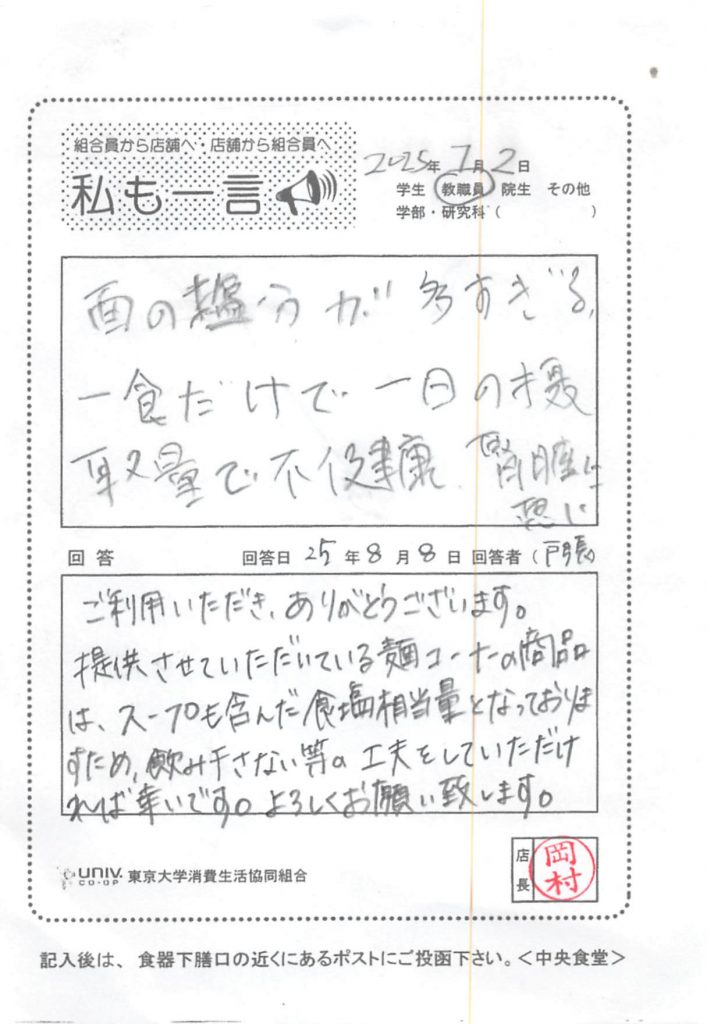 組合員から店舗へ・店舗から組合員へ
私も一言
2025年7月2日
学生 教職員 院生 その他
学部・研究科(　　　)
面の塩分が多すぎる、
一食だけで一日の摂
取量で不健康、腎臓に
悪い
回答 回答日 25年8月8日 回答者(戸張)
ご利用いただき、ありがとうございます。
提供させていただいている麺コーナーの商品
は、スープも含んだ食塩相当量となっておりま
すため、飲み干さない等の工夫をしていただけ
れば幸いです。よろしくお願い致します。
UNIV. CO-OP 東京大学消費生活協同組合
店長 岡村
記入後は、食器下膳口の近くにあるポストにご投函下さい。<中央食堂>